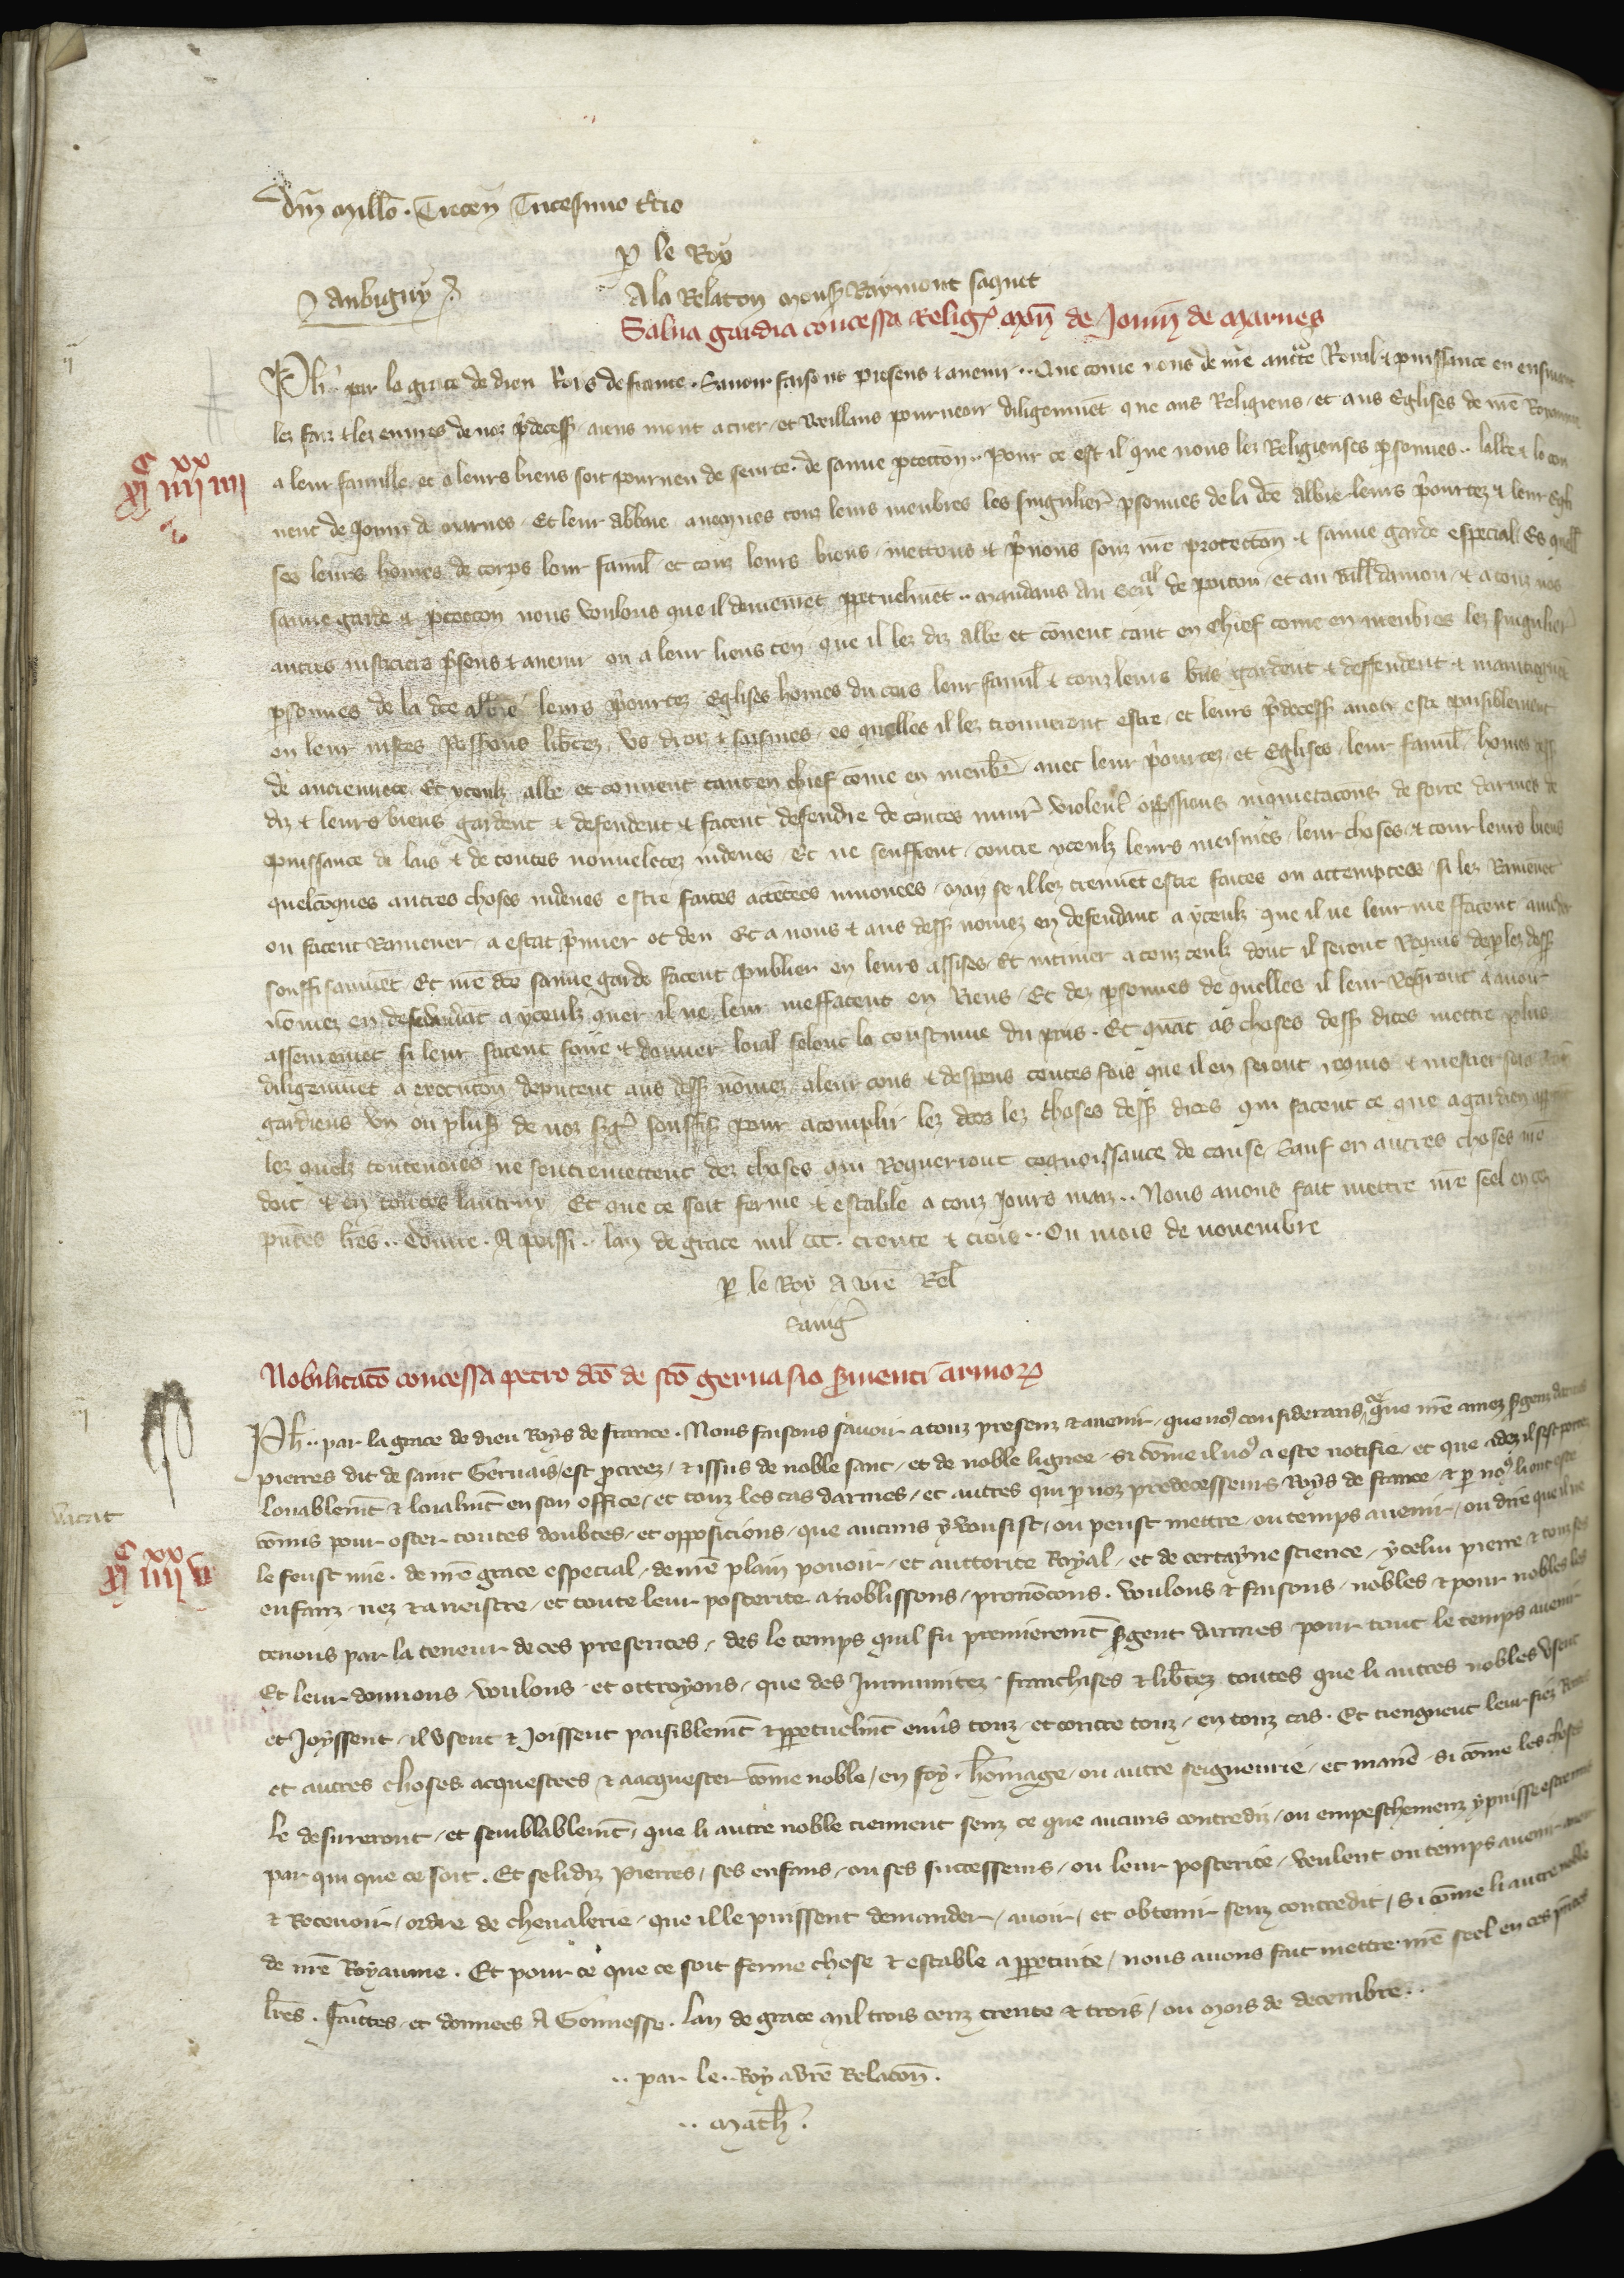 dm̄ millo. Trecen̄ Tricesimo tcio
p le Roy
Aubigny
A la Relaton mons Raymont saquet
Salua gardia concessa Relig mon de Jouin de Marnes
Ph par la grace de dieu Rois de france. Sauoir faisons presens & auenir.. Que come nous de nre auctte Roial & puissance en ensuiant
lez faiz & lez euures de noz pdecess aiens mont a cuer et Veillans pourueoir diligemmet que aus Religieus et aus Eglises de nre Royaume
a leur famille et a leurs biens soit pourueu de seurte. de sauue ptecton.. Pour ce est il que nous lez Religieuses psonnes.. labbe & le con
uent de Jouin de Marnes Et leur abbaie auecques touz leurs menbres les singulier psonnes de la dce abbie leurs priourtez & leur Egli
ses leurs homes de corps leur famil et touz leurs biens mettons & pnons souz nre protecton & sauue garde especial Es quell
sauue garde & ptecton nous voulons que il demeuret ppetuelmet.. Mandans au Sen al de poitou et au Baill damou & a touz nos
autres justiciers psens & auenir ou a leur lieus ten que il lez diz abbe et conuent tant en chief come en menbres lez singulier
psonnes de la dce abbie leurs priourtez Eglises homes du cors leur famil & touz leurs biens gardent & deffendent & maintiegnet
en leur justes possions libtez vs droiz & saisines es quelles il lez trouueront estre et leurs pdecess auoir este paisiblement
de anciennete Et yceulz abbe et conuent tant en chief come en menbr auec leur priourtez et Eglises leur famil homes dess
diz & leurs biens gardent & defendent & facent defendre de toutes iniur violenc oppssions inquietacons de force darmes de
puissance de lais & de toutes nouueletez indeues Et ne seuffrent contre yceulz leurs meismes leur choses & tour leurs biens
quelcoques autres choses indeues estre faites attetees innouees Mais se il lez treuuet estre faites ou attemptees si lez Ramenet
ou facent Ramener a estat primer et deu Et a nous & aus dess nomez en defendant a yceulz que il ne leur meffacent amender
souffisanmet Et nre dce sauue garde facent publier en leurs assises Et intimer a touz ceulz dont il seront Requis de p lez dess
nomez en defendāt a yceulz quer il ne leur meffacent en Riens Et dez psonnes de quelles il leur Reqrront a auoir
asseurement si leur facent faire & donner loial selonc la coustume du pais. Et quāt as choses dess dites mettre plus
diligemmet a executon deputent aus dess nomez a leur cous & despens toutes fois que il en seront requis & mestier sera
gardiens vn ou plus de noz sgs souffis pour acomplir lez dces lez choses dess dites qui facent ce que a gardien appt
lez quelz toutenoies ne sentremettent dez choses qui Requeriont cognoissance de cause Sauf en autres choses nre
doit & en toutes lautrui Et que ce soit ferme & estable a touz Jours mais.. Nous auons fait mettre nre seel en ces
pntes lres.. Donne. A poissi.. lan de grace mil CCC. trente & trois.. Ou mois de nouembre
p le Roy A vre Rel
Sauig
Nobilitato concessa petro dco de sco geruasio seruienti armor
Ph.. par la grace de dieu Roys de france. Nous faisons sauoir a touz presenz & auenir. que no9 considerans que nre amez sgent darmes
pierres dit de saint Geruais est pcreez & issus de noble sanc et de noble lignee si come il no9 a este notifie et que adez il sest portez
louablemt & loialmt en son office et touz les cas darmes et autres qui p noz predecesseurs Roys de france & p no9 li ont este
comis pour oster toutes doubtes et opposicions que aucuns y vousist ou peust mettre ou temps auenir ou dire que il ne
le feust mie. de nre grace especial de nre plain pouoir et auttorite Royal et de certayne science ycelui pierre & touz ses
enfanz nez & a neistre et toute leur posterite anoblissons pronōcons. voulons & faisons nobles & pour nobles les
tenons par la teneur de ces presentes des le temps quil fu premieremt sgent darmes pour tout le temps auenir
Et leur donnons voulons et ottroyons que des Immunitez franchises & libtez toutes que li autres nobles vsent
et Joyssent il vsent & Joissent paisiblemt & ppetuelmt enuers touz et contre touz en touz cas. Et tiengnent leur fiez
et autres choses acquestees & a acquester come noble en foy. homage ou autre seigneurie et manie si come les choses
le desireront et semblablemt que li autre noble tiennent senz ce que aucuns contrediz ou empeschemenz y puisse estre mis
par qui que ce soit. Et se li diz Pierres ses enfans ou ses successeurs ou leur posterite veulent ou temps auenir auoir
& Receuoir ordre de cheualerie que il le puissent demander auoir et obtenir senz contredit si come li autre noble
de nre Royaume. Et pour ce que ce soit ferme chose & estable a ppetuite nous auons fait mettre nre seel en ces pntes
lres. Faittes et donnees A Gonnesse. lan de grace mil trois cenz trente & trois ou mois de decembre..
.. par le.. Roy a vre Relacon.
.. Math.
vacat
C XX
XI IIII IIII
C XX
XI IIII V